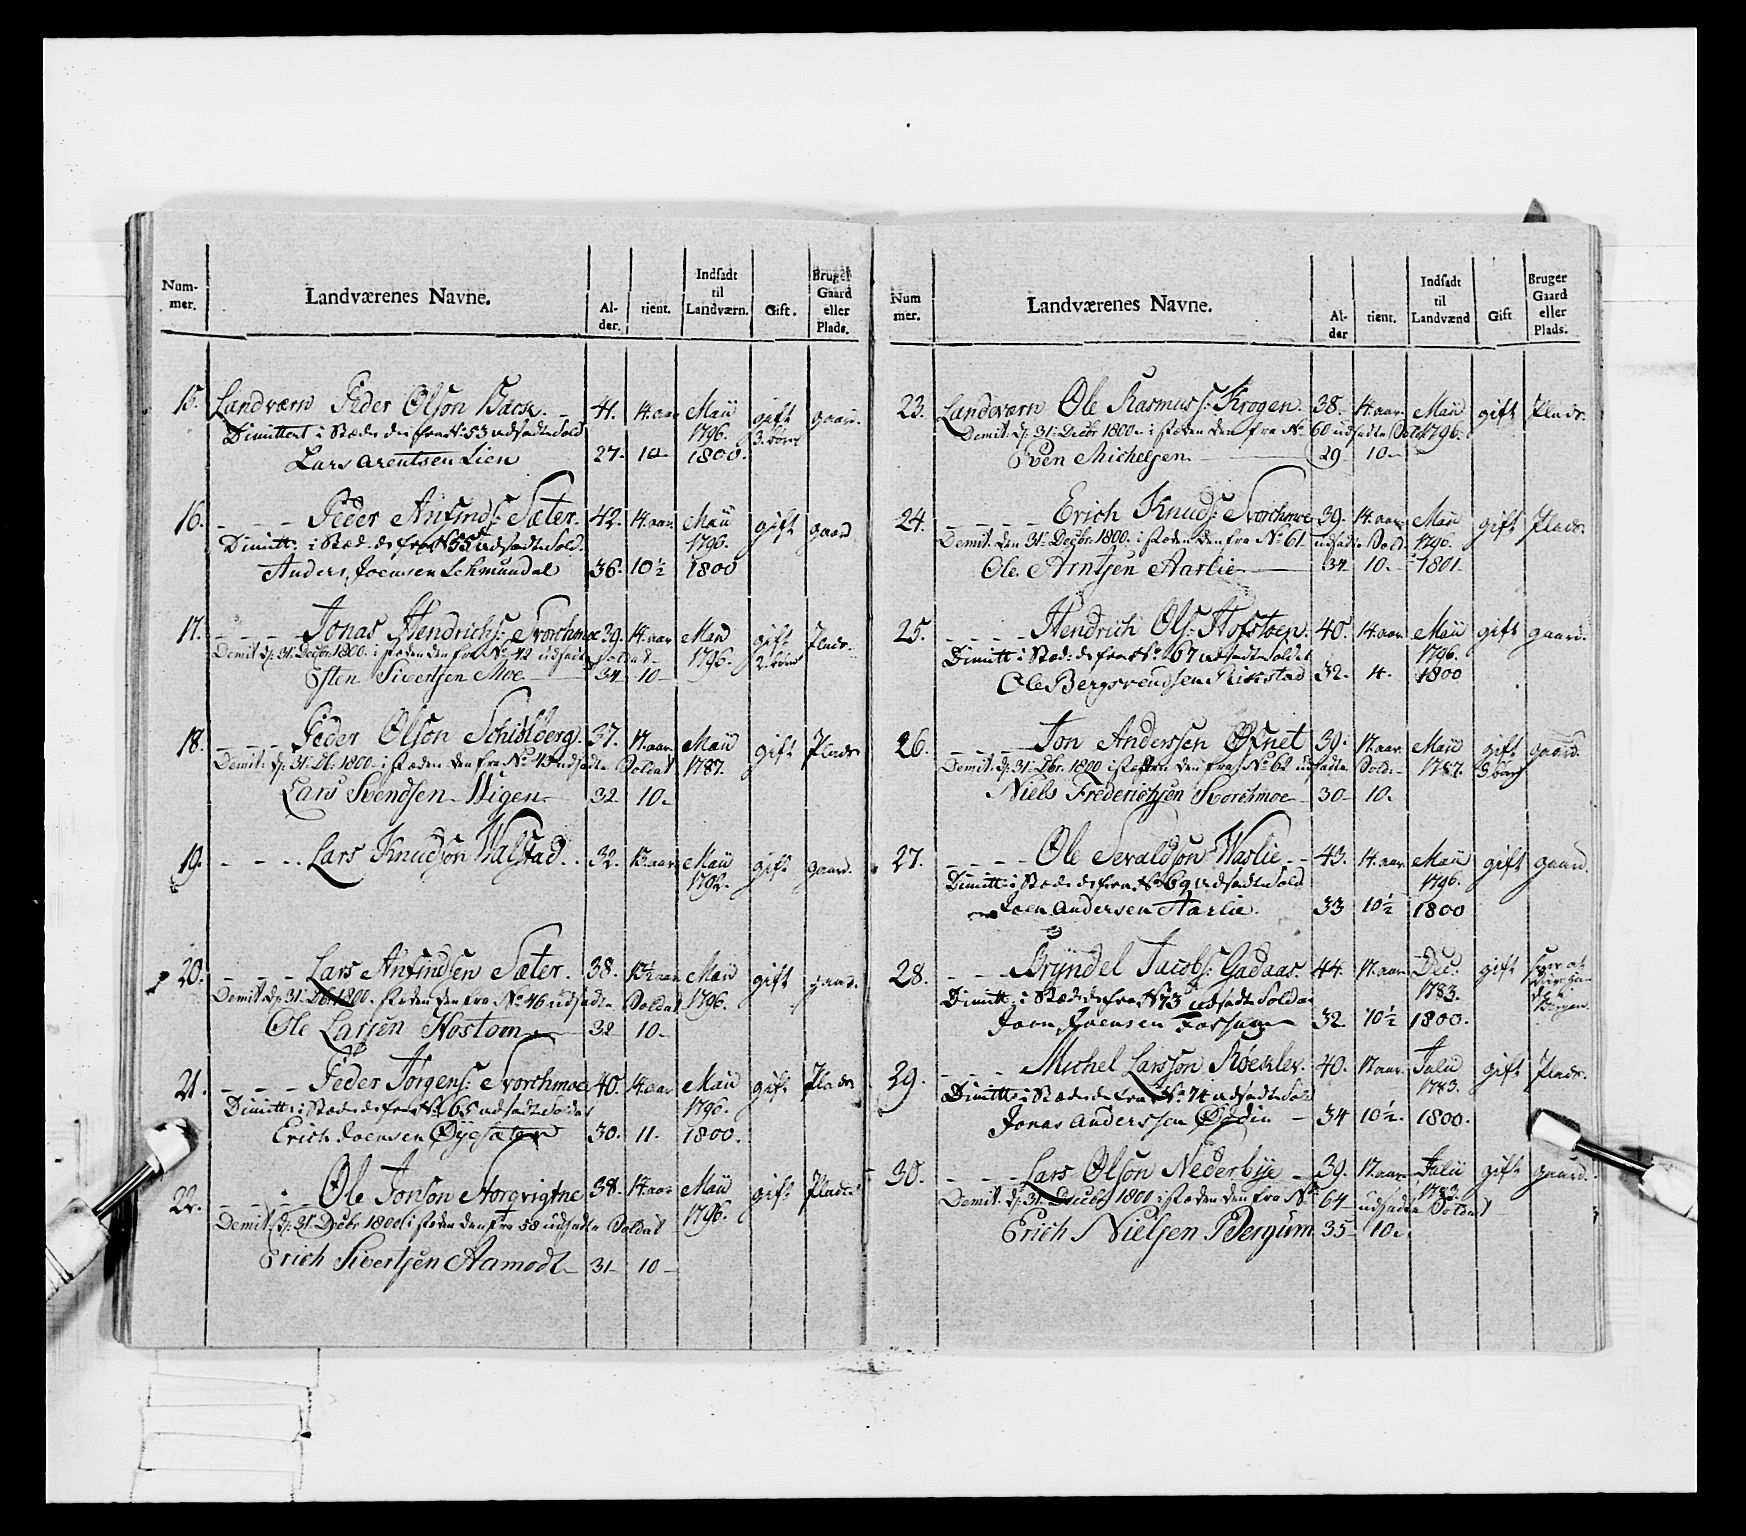 Num-
mer.
Landværenes Navne.
Al-
der.
tient.
Indsadt
til
Landværn.
Gift.
Bruger
Gaard
eller
Plads.
15. Landværn Peder Olson Back. 41. 14. aar Maii gift gaard.
Dimittert i Stæde de fra N: 53 udsadte Sold 1796. 3. børn
Lars Arentsen Lien 27. 10. 1800.
16. Peder Anfinds: Sæter. 42. 14. aar Maii gift gaard
Dimitt: i Stæd. de fra N 55 udsadte Sold. 1796.
Anders Joensen Schmundal 36. 10½ 1800
17. Jonas Hendrichs: Svorchmoe 39. 14. aar Maii gift Plads.
Demit. d: 31. Decbr 1800. i steden den fra No 42 udsadte Soldat 1796. 2. børn
Esten Sivertsen Moe 34 10
18. Peder Olson Schiölberg 37. 17. aar. Maii gift Plads
Demit. d: 31. Db. 1800 i steden den fra No 45 udsadte Soldat 1787.
Lars Svendsen Wigen 32 10.
19. Lars Knudson Walstad. 32. 13 aar Maii gift gaard.
1792.
20. Lars Anfindsen Sæter. 38. 13½ aar Maii gift gaard.
Demit. d: 31. Dbr. 1800. steden den fra No 46 udsadte Soldat 1796.
Ole Larsen Hostom 32 10
21. Peder Jørgens: Svorchmoe 40. 14. aar Maii gift Plads
Dimitt: i Stæde de fra N: 65 udsadte Soldat 1796.
Erich Joensen Øygsæter 30. 11. 1800.
22. Ole Jonson 38. 14. aar Maii gift Plads
Demit. d: 31. Decbr 1800 i steden den fra 58 udsadte Soldat 1796.
Erich Sivertsen Aamodt 31 10
Num
mer.
Landværenes Navne.
Al-
der
tient.
Indsadt
til
Landværnd
Gift
Bruger
Gaard
eller
Plads.
23. Landværn Ole Rasmuss: Krogen. 38. 14. aar. Maii gift Plads.
Demit. d: 31. Decbr 1800. i steden den fra No 60 udsadte Soldt 1796.
Even Michelsen 29 10
24. Erich Knuds: Svorchmoe 39. 14. aar. Maii gift Plads.
Demit. den 31. Decbr. 1800. i steden den fra No 61 udsadte Sold. 1796.
Ole Arntsen Aarlie 34 10. 1801
25. Hendrich Ols: Hofstoen. 40. 14. aar. Maii gift gaard.
Dimitt i Stæd: de fra N: 67 udsadte Soldat 1796.
Ole Bergsvendsen Rikstad 32. 4. 1800
26. Jon Anderssen Øsnet 39. 17. aar. Maii gift gaard.
Demit. d: 31. Dbr. 1800 i steden den fra No 62 udsadte Sold. 1787. 3 børn
Niels Frederichsen Svorchmoe 30 10.
27. Ole Sevaldson Warlie 43. 14. aar. Maii gift gaard.
Dimitt: i Stæd: de fra N: 69 udsadte Sold 1796.
Joen Andersen Aarlie. 33 10½ 1800
28. Bryndel Jacobs: Gadaas. 44. 17. aar. Dec. gift
Dimitt: i Stæde de fra N 73 udsadte Soldat 1783.
Joen Joensen Forsum 32. 10½ 1800.
29. Michel Larsson Røeklev. 40. 17. aar. Julii gift Plads.
Dimitt: i Stæde de fra N: 74 udsadte Sold 1783.
Jonas Anderssen 34 10½. 1800.
30. Lars Olson Nederbye 39. 17. aar Julii gift gaard.
Demit. d: 31. Decbr 1800 i steden den fra No 64 udsadte Soldat 1783.
Erich Nielsen Bergum 35 10.